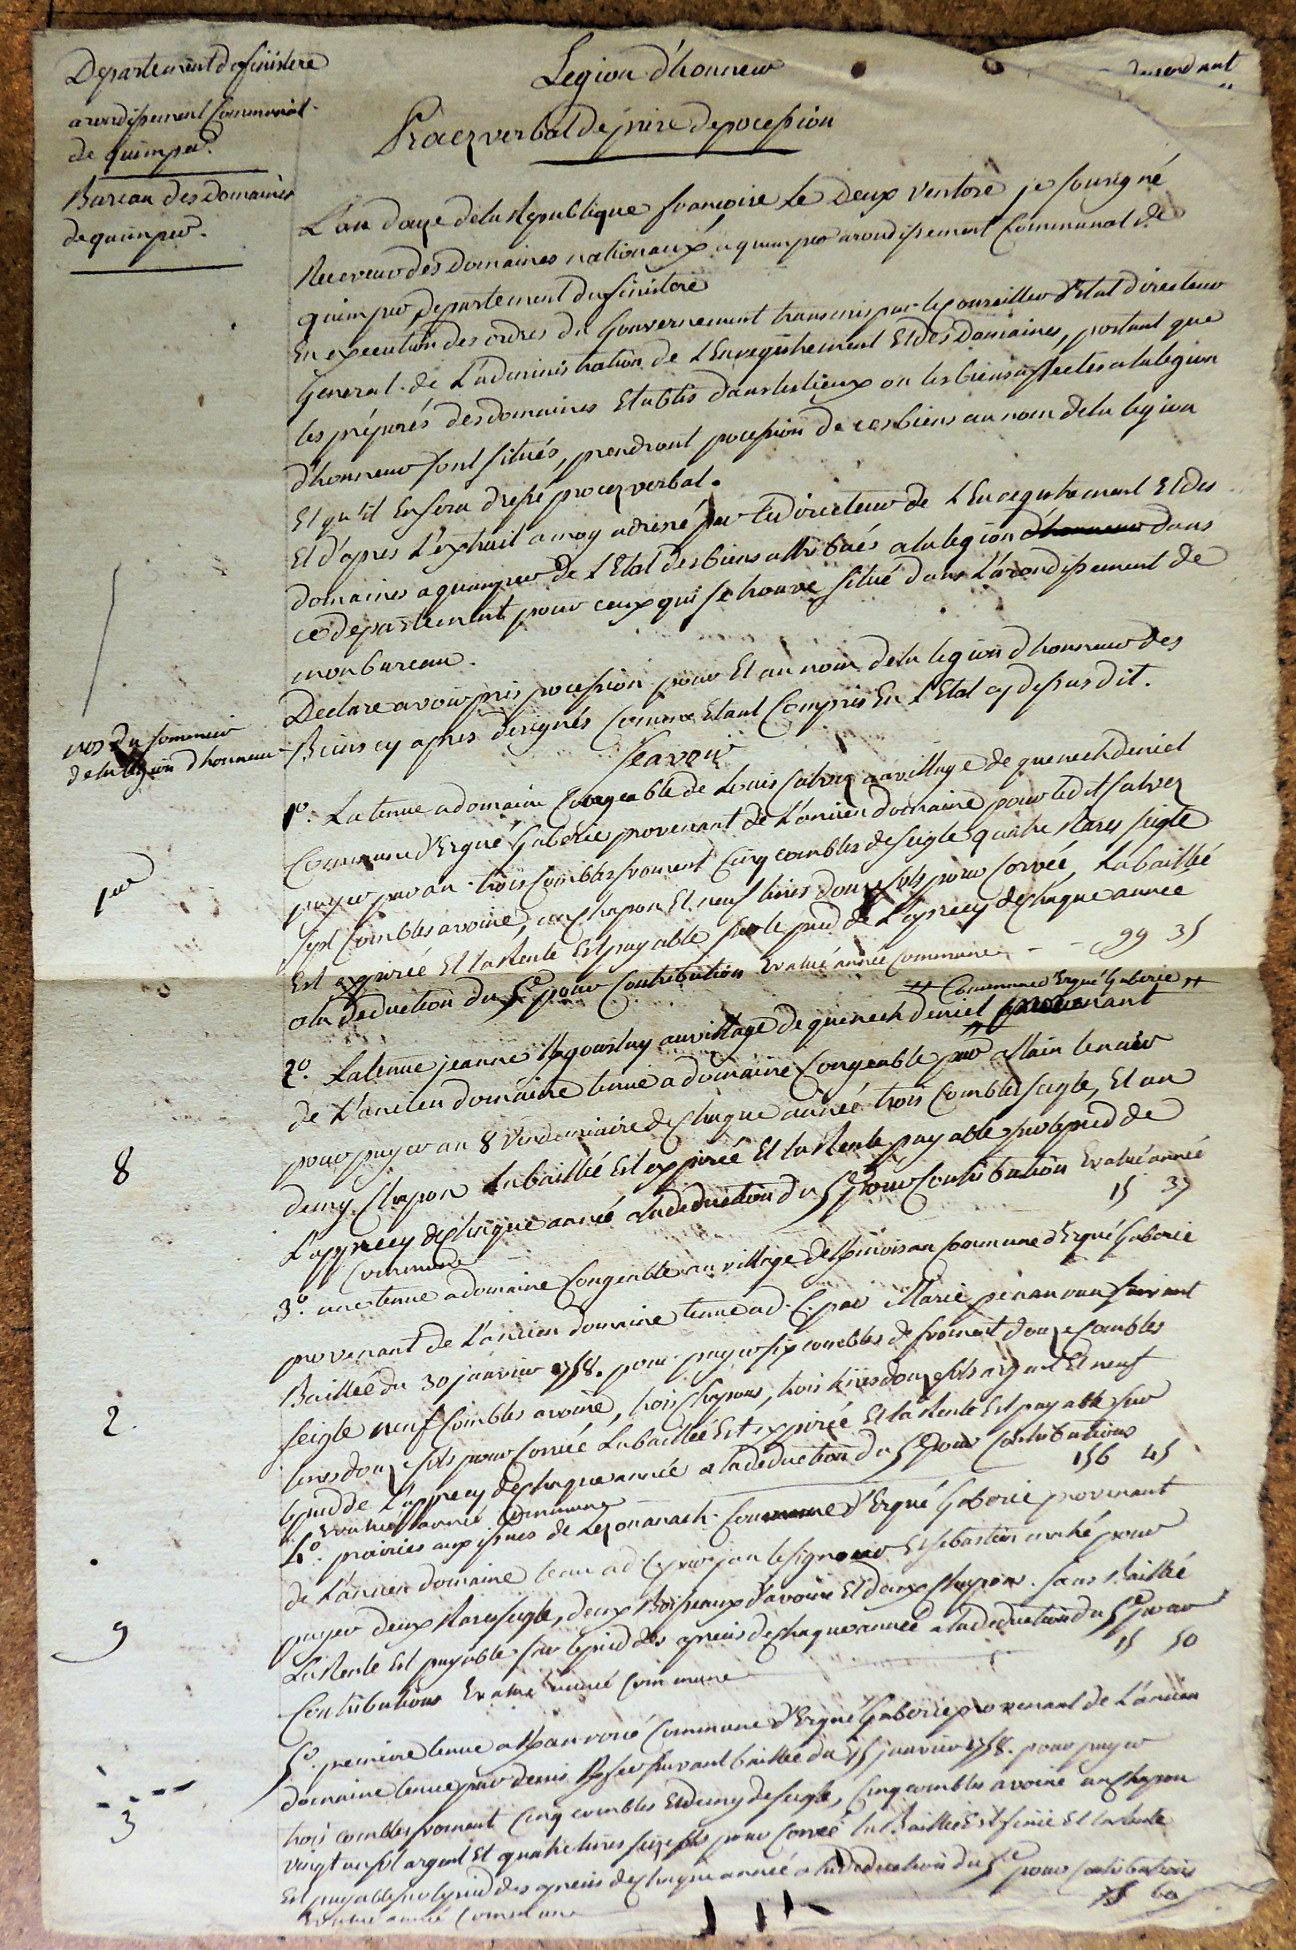 Departement du finistere
arondissement Communal
de quimper.
Bureau des Domaines
de quimper.
Legion d'honneur
Procez verbal de prise de pocession
L'an douze de la Republique francoise le Deux Ventose je sousigné
Receveur des Domaines nationaux a quimper arondissement Communal de
quimper, Departement du finistere
En execution des ordres du Gouvernement transmis par le Conseiller d'Etat directeur
General de L'administration de L'Enregistrement Et des Domaines, portant que
les préposés des domaines Etablis dans les lieux ou les biens affectés a la legion
d'honneur sont situés, prendront pocession de ces biens au nom de la legion
Et qu'il En sera dressé procez verbal.
Et d'apres L'extrait a moy adressé par le Directeur de L'Enregistrement Et des
domaines a quimper de L'Etat des biens attribués a la legion d'honneur dans
ce departement pour ceux qui se trouve situé dans L'arondissement de
mon bureau.
Declare avoir pris pocession pour Et au nom de la legion d'honneur des
Biens cy apres designés Comme Etant Compris En L'Etat cy dessus dit.
Scavoir
nos du sommier
de la legion d'honneur
1er
1º. La tenue a domaine Congeable de Louis Salvez au village de quenechdeniel
Commune d'Ergué Gaberie provenant de L'ancien domaine pour ledit Salvez
payer par an trois Combles froment Cinq combles de seigle quatre Rares seigle
sept Combles avoine, un Chapon Et neuf livres douze sols pour Corvée, La baillée
Est expirée Et la Rente Est payable sur le pied de L'aprecy de chaque année
a la deduction du 5e pour Contribution Evalué année Commune - - 99 35
8
2º. La tenue jeanne Le gourlay au village de quenechdeniel provenant
# Commune d'Ergué Gaberie #
de L'ancien domaine tenue a domaine Congeable par allain
pour payer au 8 Vendemiaire de Chaque année trois Combles seigle, Et un
demy Chapon La baillée Est expirée Et la Rente payable sur le pied de
L'apprecy de Chaque année a la deduction du 5e pour Contribution Evalué année
Commune 15 37
2
3º. une tenue a domaine Congeable au village de Commune d'Ergué Gaberie
provenant de L'ancien domaine tenue a d. C. par Marie suivant
Baillée du 30 janvier 1758. pour payer six combles de froment douze Combles
seigle neuf Combles avoine, trois Chapons, trois livres douze sols argent Et neuf
livres douze sols pour Corvée La baillée Est expirée Et la Rente Est payable sur
le pied de L'apprecy de chaque année a la deduction du 5e pour Contributions
Evalué année Commune 156 45
9
4º. prairies aux issues de Lezouanach Commune d'Ergué Gaberie provenant
de L'ancien domaine tenu a d. C. par jan le signour Et Sebastien mahé pour
payer deux Rares seigle, deux Boisseaux d'avoine Et deux Chapons. Sans Baillée
La Rente Est payable sur le pied des apreciis de chaque année a la deduction du 5e pour
Contributions Evalué année Commune 15 50
3
5º. premiere tenue a Commune d'Ergué Gaberie provenant de L'ancien
domaine tenue par denis suivant baillée du 15 janvier 1758. pour payer
trois combles froment Cinq combles Et demy de seigle, Cinq combles avoine un Chapon
vingt un sol argent Et quatre livres seize sols pour Corvée la Baillée Est finie Et la Rente
Est payable sur le pied des apreciis de chaque année a la deduction du 5e pour Contributions
Evalué année Commune 75 60